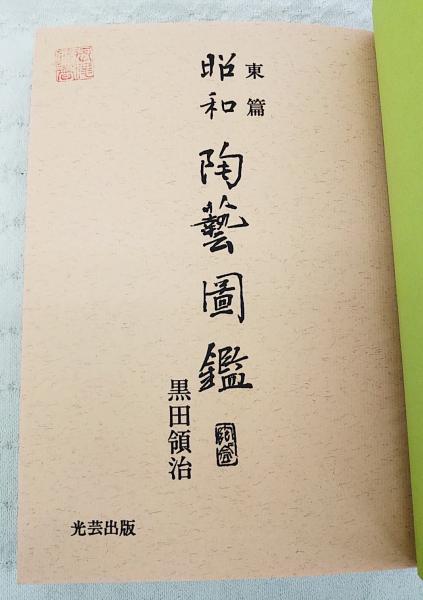 東篇
昭和陶藝圖鑑
黒田領治
光芸出版